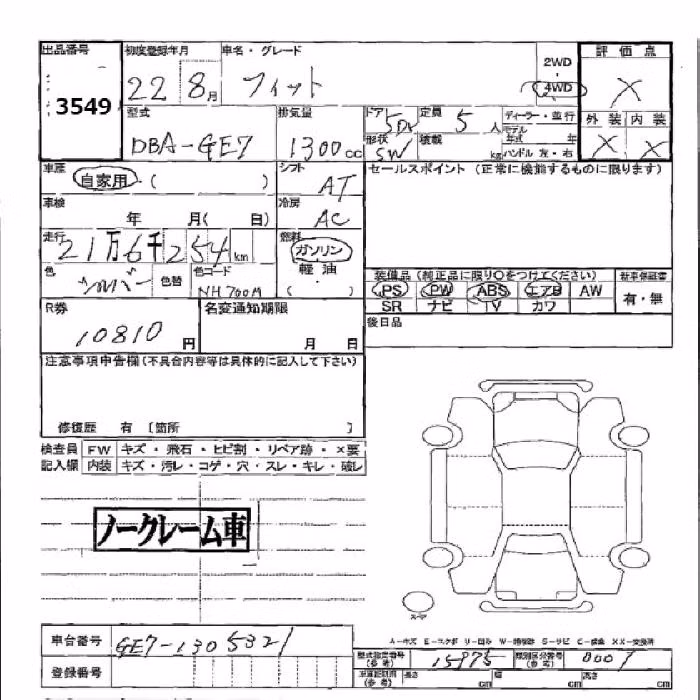 出品番号 初度登録年月 車名・グレード 2WD 評価点
3549 22 8月 フィット 4WD X
型式 排気量 ドア 5DR 定員 5人 ディーラー・並行 外装 内装
DBA-GE7 1300cc 形状 SW 積載 kg モデル年式 年 ハンドル 左・右 X X
車歴 自家用・( ) シフト AT セールスポイント(正常に機能するものに限ります)
車検 年 月( 日) 冷房 AC
走行 21万6千254km 燃料 ガソリン
軽油
色 シルバー 色替 色コード NH700M ( ・ ) 装備品(純正品に限り○をつけてください) 新車保証書
PS PW ABS エアB AW 有・無
R券 名変通知期限 SR ナビ TV カワ
10810円 月 日 後日品
注意事項申告欄(不具合内容等は具体的に記入して下さい)
修復歴 有 〔箇所 〕
検査員 FW キズ・飛石・ヒビ割・リペア跡・×要
記入欄 内装 キズ・汚レ・コゲ・穴・スレ・キレ・破レ
ノークレーム車
スペア
車台番号 GE7-1305321 型式指定番号(参考) 15975 類別区分番号(参考) 0007
登録番号 長さ cm 幅 cm 高さ cm